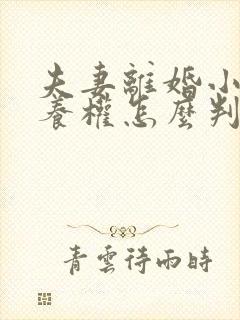 夫妻離婚小
養權怎麼判
青雲待雨時